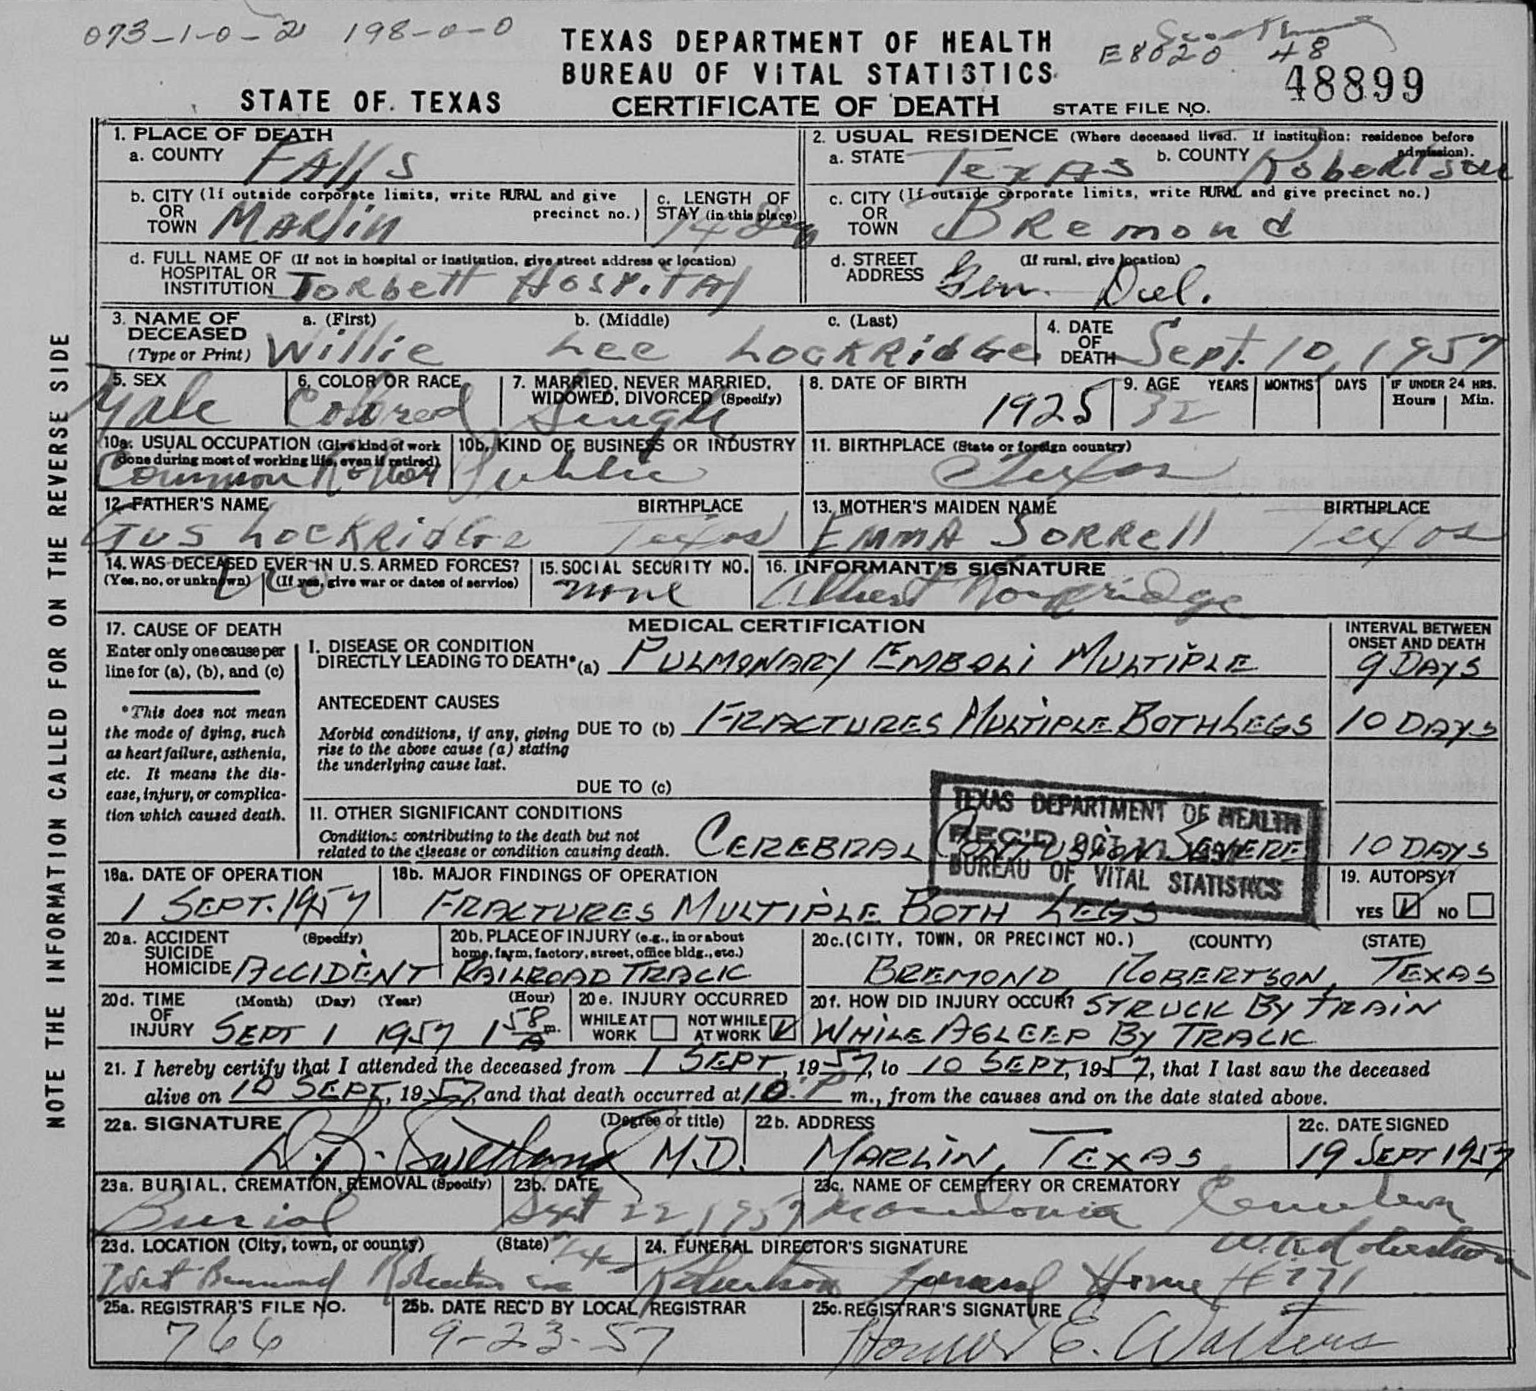 073-1-0-2 198-0-0
E8020 48
TEXAS DEPARTMENT OF HEALTH
BUREAU OF VITAL STATISTICS
STATE OF TEXAS
CERTIFICATE OF DEATH
STATE FILE NO. 48899
NOTE THE INFORMATION CALLED FOR ON THE REVERSE SIDE
1. PLACE OF DEATH
a. COUNTY Falls
2. USUAL RESIDENCE (Where deceased lived. If institution: residence before admission).
a. STATE Texas b. COUNTY Robertson
b. CITY (If outside corporate limits, write RURAL and give precinct no.)
OR
TOWN Marlin
c. LENGTH OF
STAY (in this place)
c. CITY (If outside corporate limits, write RURAL and give precinct no.)
OR
TOWN Bremond
d. FULL NAME OF (If not in hospital or institution, give street address or location)
HOSPITAL OR
INSTITUTION Torbett Hospital
d. STREET (If rural, give location)
ADDRESS Gen. Del.
3. NAME OF
DECEASED
(Type or Print)
a. (First) b. (Middle) c. (Last)
Willie Lee Lockridge
4. DATE
OF
DEATH Sept. 10, 1957
5. SEX
Male
6. COLOR OR RACE
Colored
7. MARRIED, NEVER MARRIED,
WIDOWED, DIVORCED (Specify)
Single
8. DATE OF BIRTH
1925
9. AGE YEARS MONTHS DAYS IF UNDER 24 HRS.
Hours Min.
32
10a. USUAL OCCUPATION (Give kind of work
done during most of working life, even if retired)
Common
10b. KIND OF BUSINESS OR INDUSTRY
Public
11. BIRTHPLACE (State or foreign country)
Texas
12. FATHER'S NAME BIRTHPLACE
Gus Lockridge Texas
13. MOTHER'S MAIDEN NAME BIRTHPLACE
Emma Sorrell Texas
14. WAS DECEASED EVER IN U.S. ARMED FORCES?
(Yes, no, or unknown) (If yes, give war or dates of service)
15. SOCIAL SECURITY NO.
none
16. INFORMANT'S SIGNATURE
Albert
17. CAUSE OF DEATH
Enter only one cause per
line for (a), (b), and (c)
*This does not mean
the mode of dying, such
as heart failure, asthenia,
etc. It means the dis-
ease, injury, or complica-
tion which caused death.
MEDICAL CERTIFICATION
INTERVAL BETWEEN
ONSET AND DEATH
I. DISEASE OR CONDITION
DIRECTLY LEADING TO DEATH*(a) Pulmonary Emboli Multiple 9 Days
ANTECEDENT CAUSES
Morbid conditions, if any, giving
rise to the above cause (a) stating
the underlying cause last.
DUE TO (b) Fractures Multiple Both Legs 10 Days
DUE TO (c)
II. OTHER SIGNIFICANT CONDITIONS
Conditions contributing to the death but not
related to the disease or condition causing death.
Cerebral Contusion Severe 10 Days
TEXAS DEPARTMENT OF HEALTH
REC'D OCT
BUREAU OF VITAL STATISTICS
18a. DATE OF OPERATION
1 Sept. 1957
18b. MAJOR FINDINGS OF OPERATION
Fractures Multiple Both Legs
19. AUTOPSY?
YES ✓ NO
20a. ACCIDENT (Specify)
SUICIDE
HOMICIDE Accident
20b. PLACE OF INJURY (e.g., in or about
home, farm, factory, street, office bldg., etc.)
Railroad Track
20c. (CITY, TOWN, OR PRECINCT NO.) (COUNTY) (STATE)
Bremond, Robertson, Texas
20d. TIME (Month) (Day) (Year) (Hour)
OF
INJURY Sept 1 1957 1 58 A m.
20e. INJURY OCCURRED
WHILE AT WORK NOT WHILE AT WORK ✓
20f. HOW DID INJURY OCCUR? Struck By Train
While Asleep By Track
21. I hereby certify that I attended the deceased from 1 Sept, 1957, to 10 Sept, 1957, that I last saw the deceased
alive on 10 Sept, 1957, and that death occurred at 10:P m., from the causes and on the date stated above.
22a. SIGNATURE (Degree or title)
M.D.
22b. ADDRESS
Marlin, Texas
22c. DATE SIGNED
19 Sept 1957
23a. BURIAL, CREMATION, REMOVAL (Specify)
Burial
23b. DATE
Sept 22, 1957
23c. NAME OF CEMETERY OR CREMATORY
23d. LOCATION (City, town, or county) (State)
West Bremond
24. FUNERAL DIRECTOR'S SIGNATURE
Robertson Funeral Home #771
25a. REGISTRAR'S FILE NO.
766
25b. DATE REC'D BY LOCAL REGISTRAR
9-23-57
25c. REGISTRAR'S SIGNATURE
Homer E. Walters